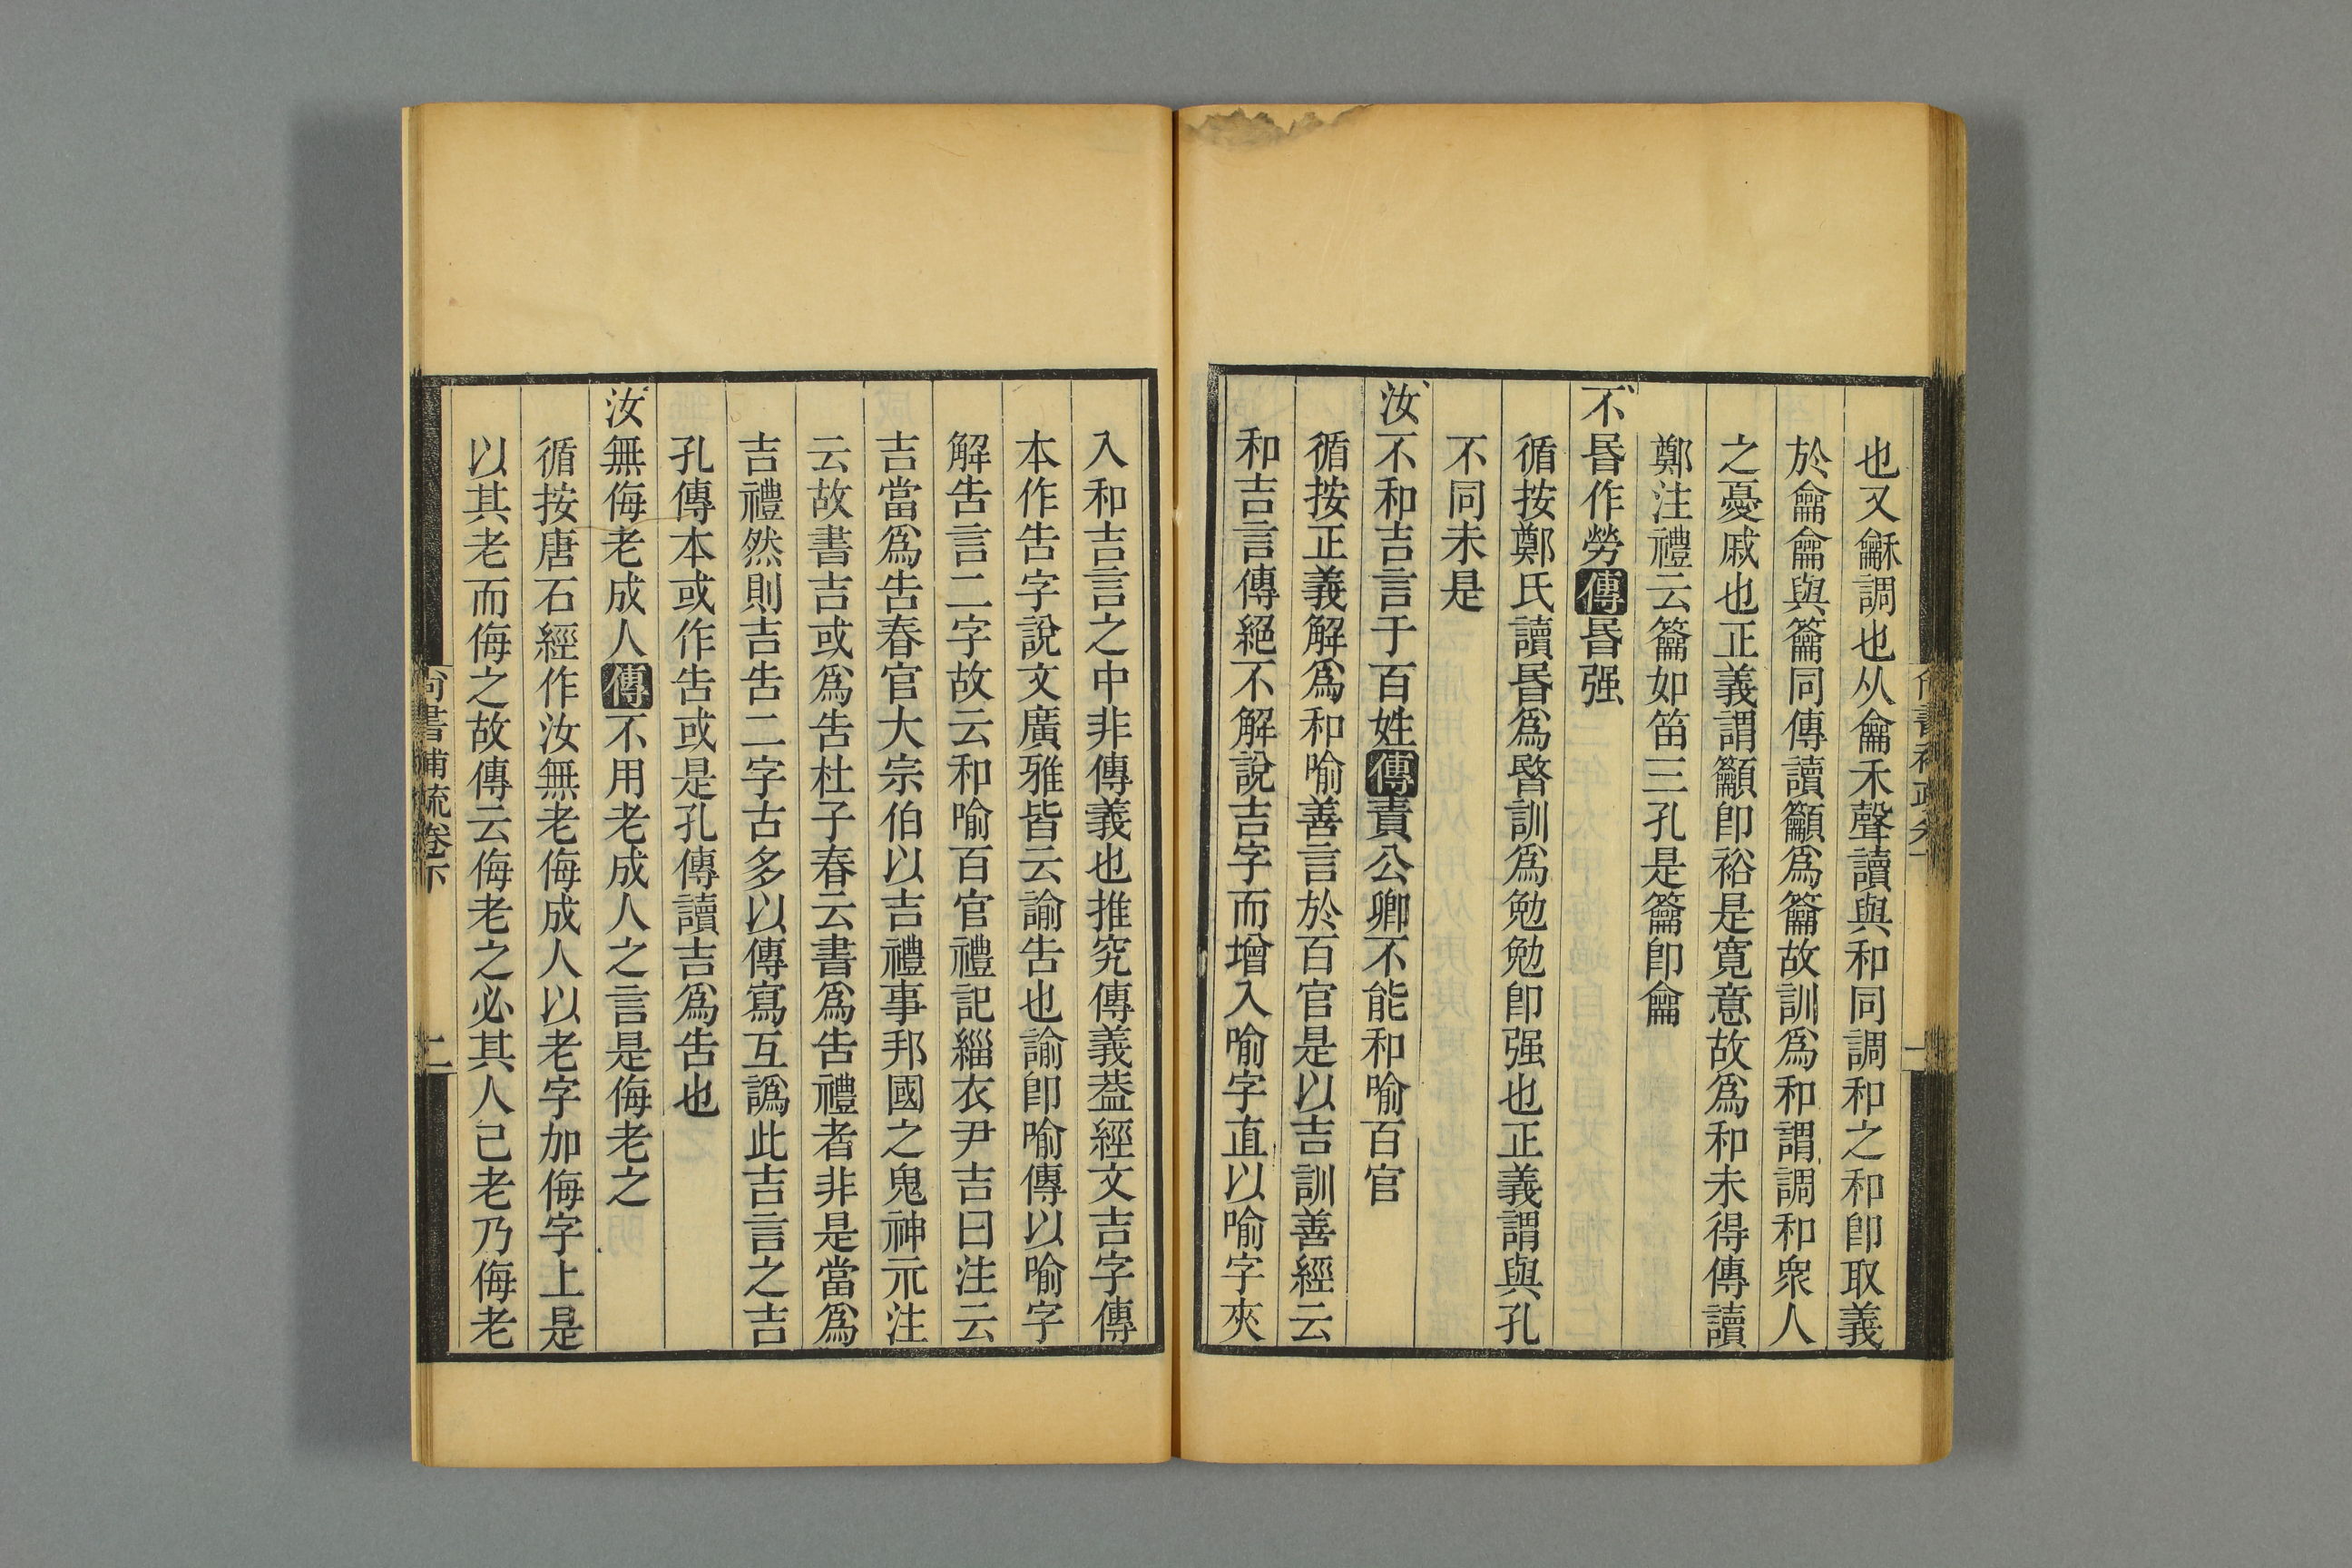 也又龢調也从龠禾聲讀與和同調和之和卽取義
於龠龠與籥同傳讀籲爲籥故訓爲和謂調和衆人
之憂戚也正義謂籲卽裕是寬意故爲和未得傳讀
鄭注禮云籥如笛三孔是籥卽龠
不昬作勞傳昬强
循按鄭氏讀昬爲暋訓爲勉勉卽强也正義謂與孔
不同未是
汝不和吉言于百姓傳責公卿不能和喻百官
循按正義解爲和喻善言於百官是以吉訓善經云
和吉言傳絕不解說吉字而增入喻字直以喻字夾
入和吉言之中非傳義也推究傳義葢經文吉字傳
本作告字說文廣雅皆云諭告也諭卽喻傳以喻字
解告言二字故云和喻百官禮記緇衣尹吉曰注云
吉當爲告春官大宗伯以吉禮事邦國之鬼神示注
云故書吉或爲告杜子春云書爲告禮者非是當爲
吉禮然則吉告二字古多以傳寫互譌此吉言之吉
孔傳本或作告或是孔傳讀吉爲告也
汝無侮老成人傳不用老成人之言是侮老之
循按唐石經作汝無老侮成人以老字加侮字上是
以其老而侮之故傳云侮老之必其人已老乃侮老
尚書補疏卷下
二